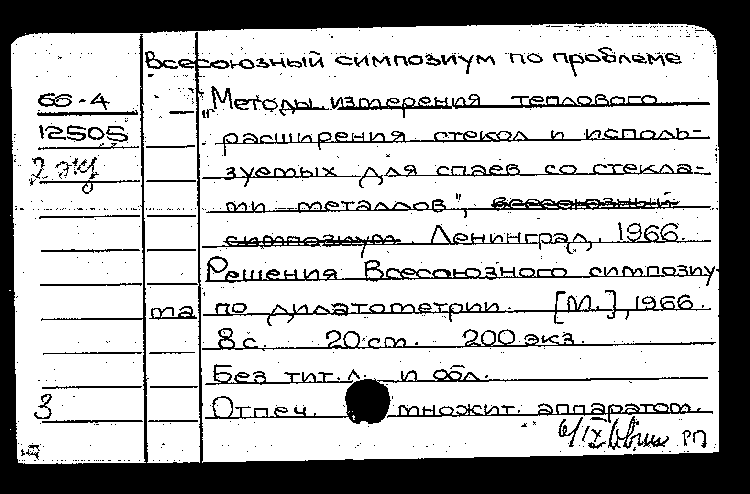 Всесоюзный симпозиум по проблеме
66-4 — „Методы измерения теплового
12505 расширения стекол и исполь-
2 экз зуемых для спаев со стекла-
ми металлов", всесоюзный
симпозиум. Ленинград, 1966.
Решения Всесоюзного симпозиу-
ма по дилатометрии. [М.], 1966.
8 с. 20 см. 200 экз.
Без тит. л. и обл.
3 Отпеч. множит. аппаратом.
6/IX РП